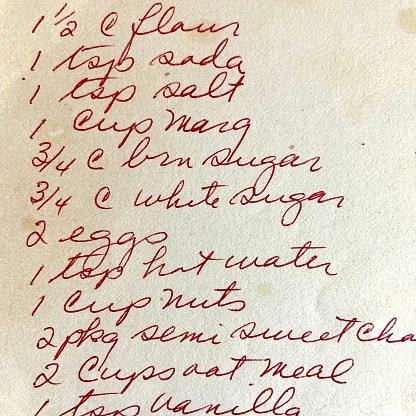 1 1/2 c flour
1 tsp soda
1 tsp salt
1 cup marg
3/4 c brn sugar
3/4 c white sugar
2 eggs
1 tsp hot water
1 cup nuts
2 pkg semi sweet cho
2 cups oat meal
1 tsp vanilla